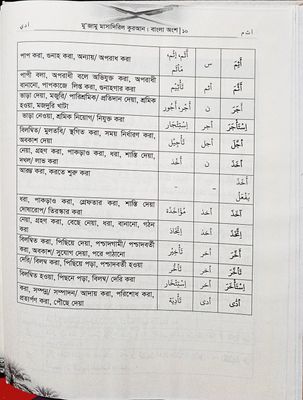 أدي মু'জামু মাসাদিরিল কুরআন : বাংলা অংশ | ১০ أ ث م
পাপ করা, গুনাহ করা, অন্যায়/ অপরাধ করা إِثْم، أَثْم، مَأْثَم س أَثِمَ
পাপী বলা, অপরাধী বলে অভিযুক্ত করা, অপরাধী বানানো, পাপকাজে লিপ্ত করা, গুনাহগার করা تَأْثِيْم أثم أَثَّمَ
ভাড়া দেয়া, মজুরি/ পারিশ্রমিক/ প্রতিদান দেয়া, শ্রমিক হওয়া, মজদুরি খাটা أَجْر، أُجُور ن أَجَرَ
ভাড়া নেওয়া, শ্রমিক নিয়োগ/ নিযুক্ত করা اِسْتِئْجَار أجر اِسْتَأْجَرَ
বিলম্বিত/ মুলতবি/ স্থগিত করা, সময় নির্ধারণ করা, অবকাশ দেয়া تَأْجِيْل أجل أَجَّلَ
নেয়া, গ্রহণ করা, পাকড়াও করা, ধরা, শাস্তি দেয়া, দখল/ লাভ করা أَخْذ ن أَخَذَ
আরম্ভ করা, করতে শুরু করা - - أَخَذَ يَفْعَلُ
ধরা, পাকড়াও করা, গ্রেফতার করা, শাস্তি দেয়া দোষারোপ/ তিরস্কার করা مُؤَاخَذَة أخذ آخَذَ
নেয়া, গ্রহণ করা, বেছে নেয়া, ধরা, বানানো, গঠন করা اِتِّخَاذ أخذ اِتَّخَذَ
বিলম্বিত করা, পিছিয়ে দেয়া, পশ্চাদগামী/ পশ্চাদবর্তী করা, অবকাশ/ সুযোগ দেয়া, পরে পাঠানো تَأْخِيْر أخر أَخَّرَ
দেরি/ বিলম্ব করা, পিছিয়ে পড়া, পশ্চাদবর্তী হওয়া تَأَخُّر أخر تَأَخَّرَ
বিলম্বিত হওয়া, পিছনে পড়া, বিলম্ব/ দেরি করা اِسْتِئْخَار أخر اِسْتَأْخَرَ
করা, সম্পন্ন/ সম্পাদন/ আদায় করা, পরিশোধ করা, প্রত্যার্পণ করা, পৌঁছে দেয়া تَأْدِيَة أدى أَدَّى